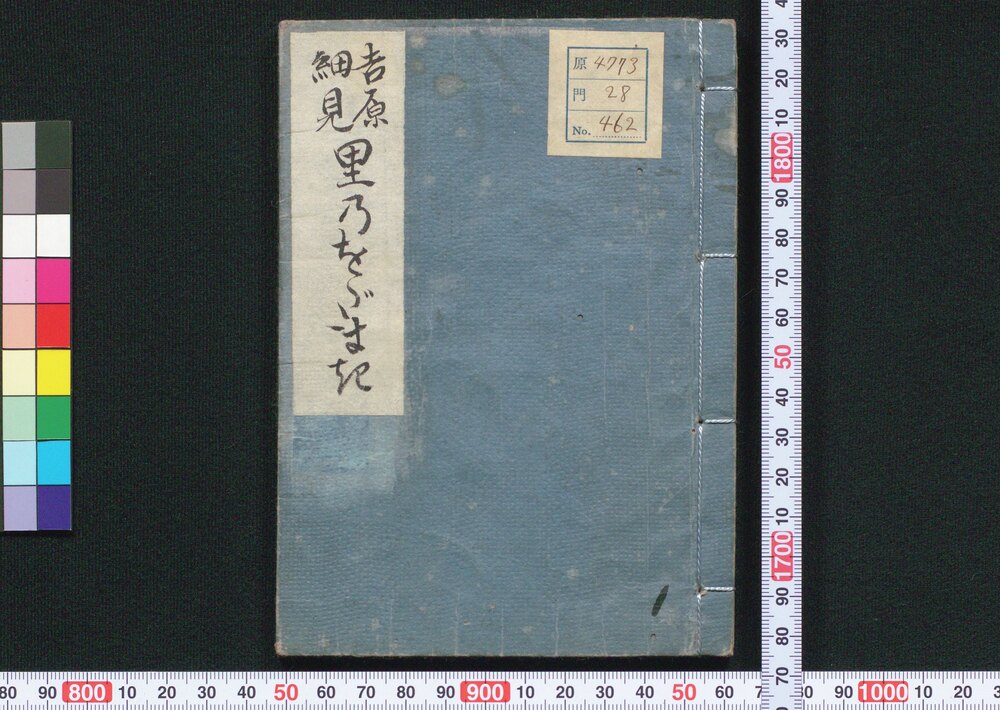 吉原
細見
里乃をだま記
原 4773
門 28
No. 462
30 20 10 1800 90 80 70 60 50 40 30 20 10 1700 90 80 70
80 90 800 10 20 30 40 50 60 70 80 90 900 10 20 30 40 50 60 80 90 1000 10 20